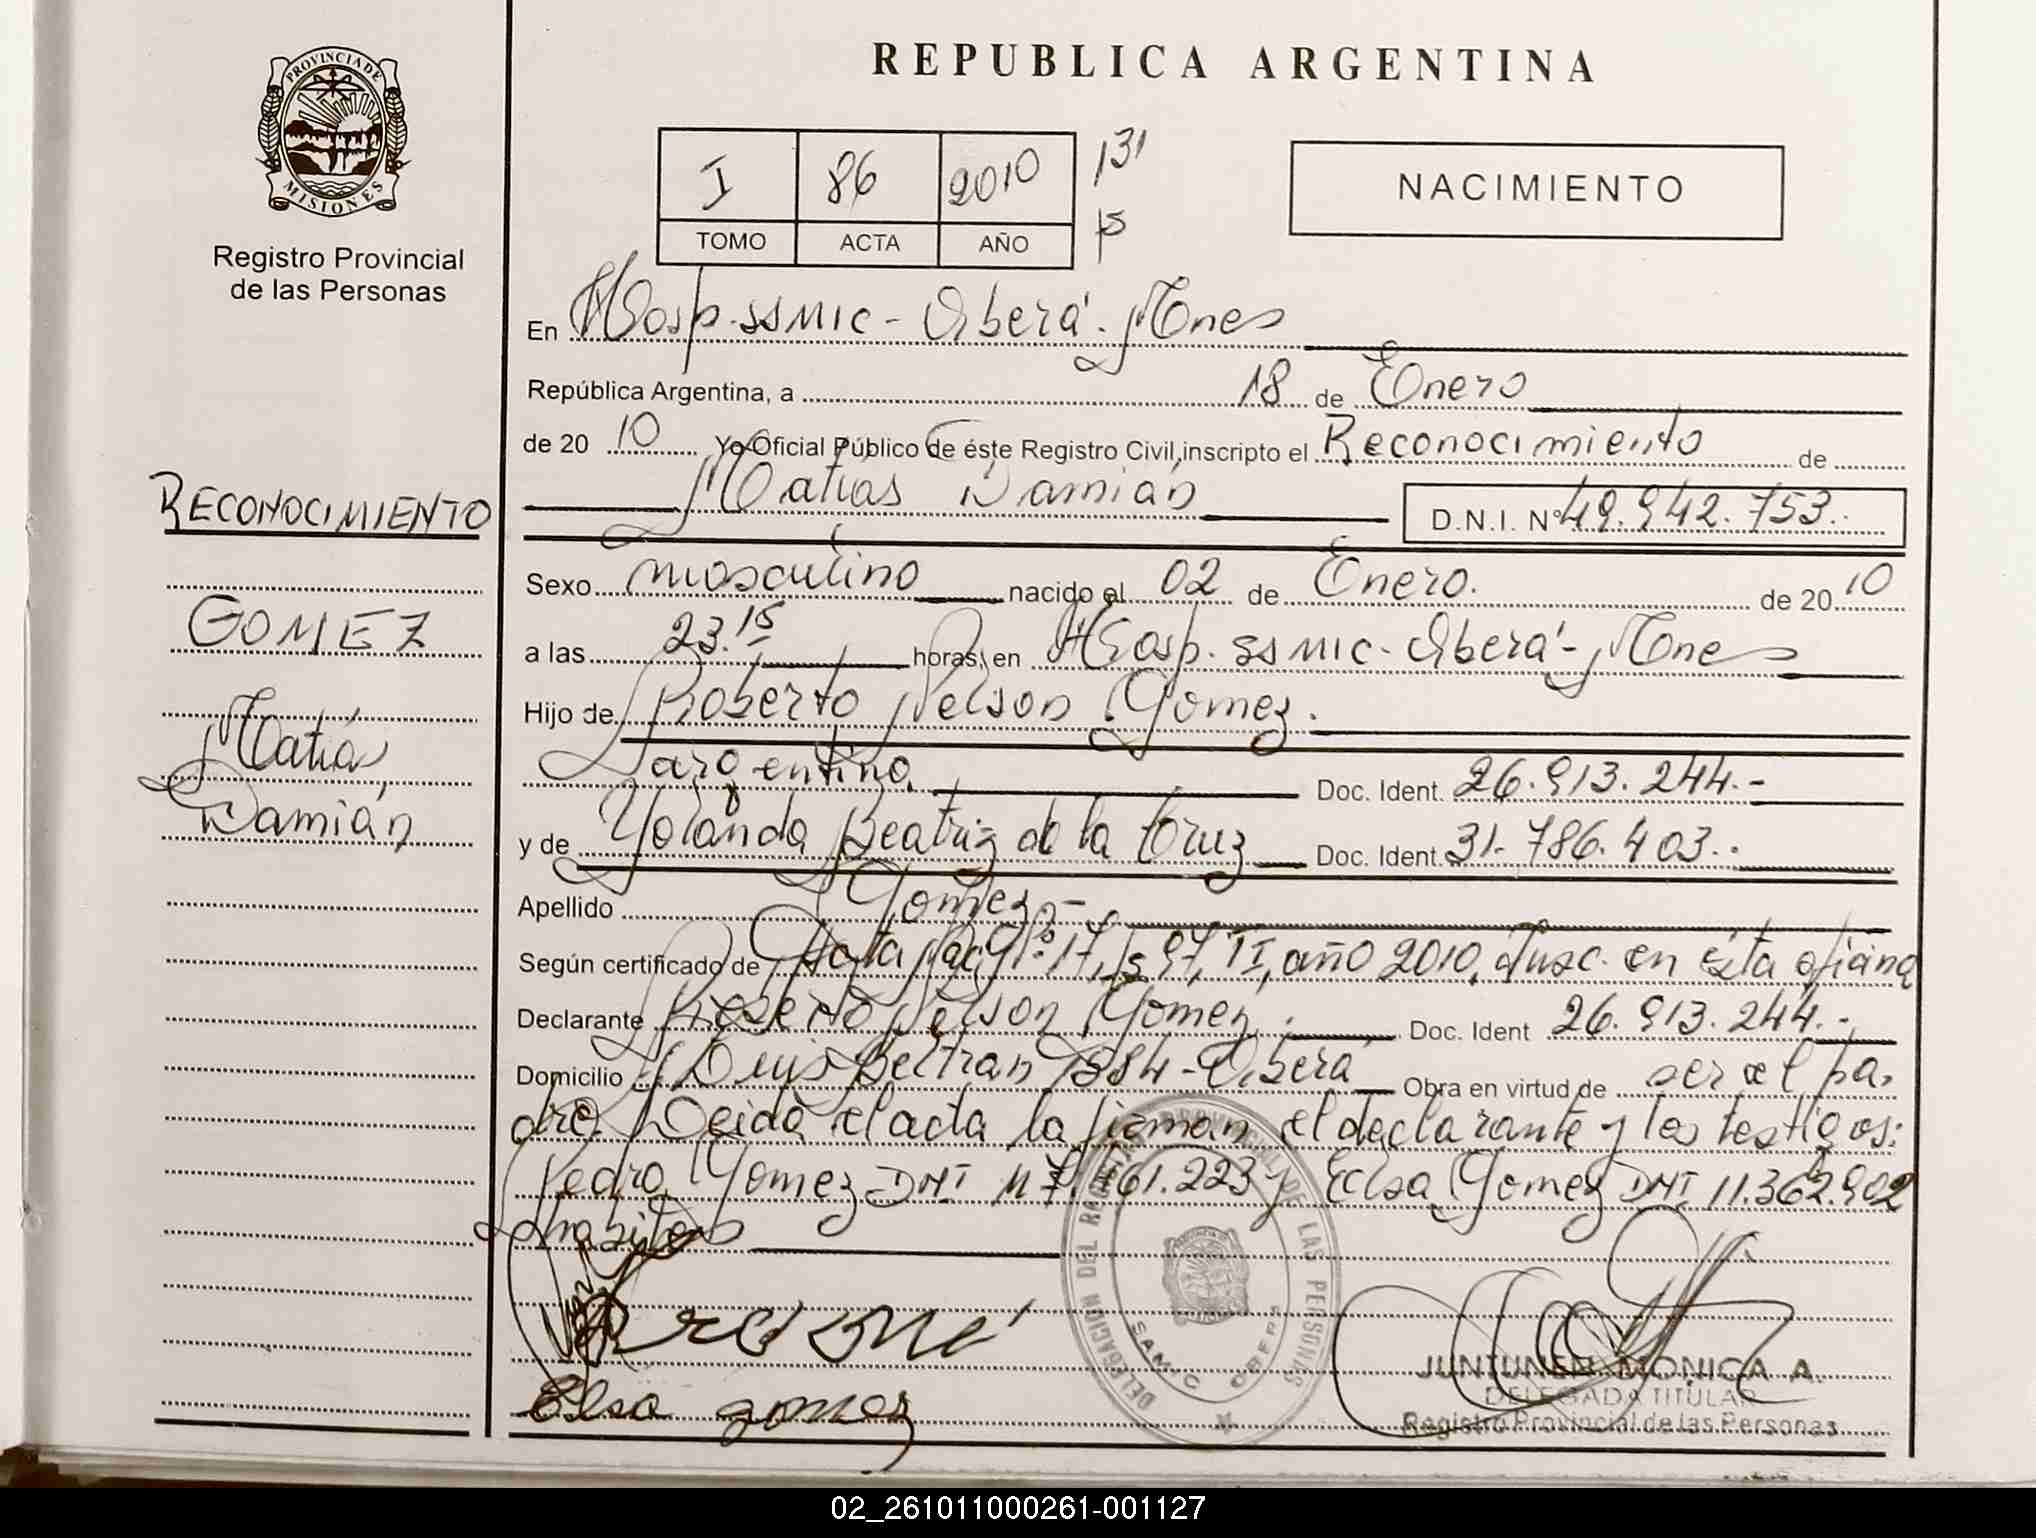 PROVINCIA DE
MISIONES
Registro Provincial
de las Personas
RECONOCIMIENTO
GOMEZ
Matías
Damián
REPUBLICA ARGENTINA
I 86 2010 131
TOMO ACTA AÑO
NACIMIENTO
En Hosp. SSMIC - Oberá - Mnes
República Argentina, a 18 de Enero
de 20 10 Yo Oficial Público de éste Registro Civil, inscripto el Reconocimiento de
Matías Damián D.N.I. Nº 49.942.753.-
Sexo masculino nacido el 02 de Enero. de 20 10
a las 23.15 horas, en Hosp. SSMIC - Oberá - Mnes
Hijo de Roberto Nelson Gomez.
argentino Doc. Ident. 26.913.244.-
y de Yolanda Beatriz de la Cruz Doc. Ident. 31.786.403.-
Apellido Gomez.-
Según certificado de Acta Nac Nº 17, Fs 97, TI, año 2010, Insc. en ésta oficina
Declarante Roberto Nelson Gomez. Doc. Ident 26.913.244.-
Domicilio Luis Beltran 1384 - Oberá Obra en virtud de ser el pa-
dre Leída el acta la firman el declarante y los testigos:
Pedro Gomez DNI M 7. 61.223 y Elsa Gomez DNI 11.362.902
Elsa gomez
DELEGACION DEL REGISTRO PROVINCIAL DE LAS PERSONAS
SAMIC OBERA
JUNTUNEN MONICA A.
DELEGADA TITULAR
Registro Provincial de las Personas
02_261011000261-001127